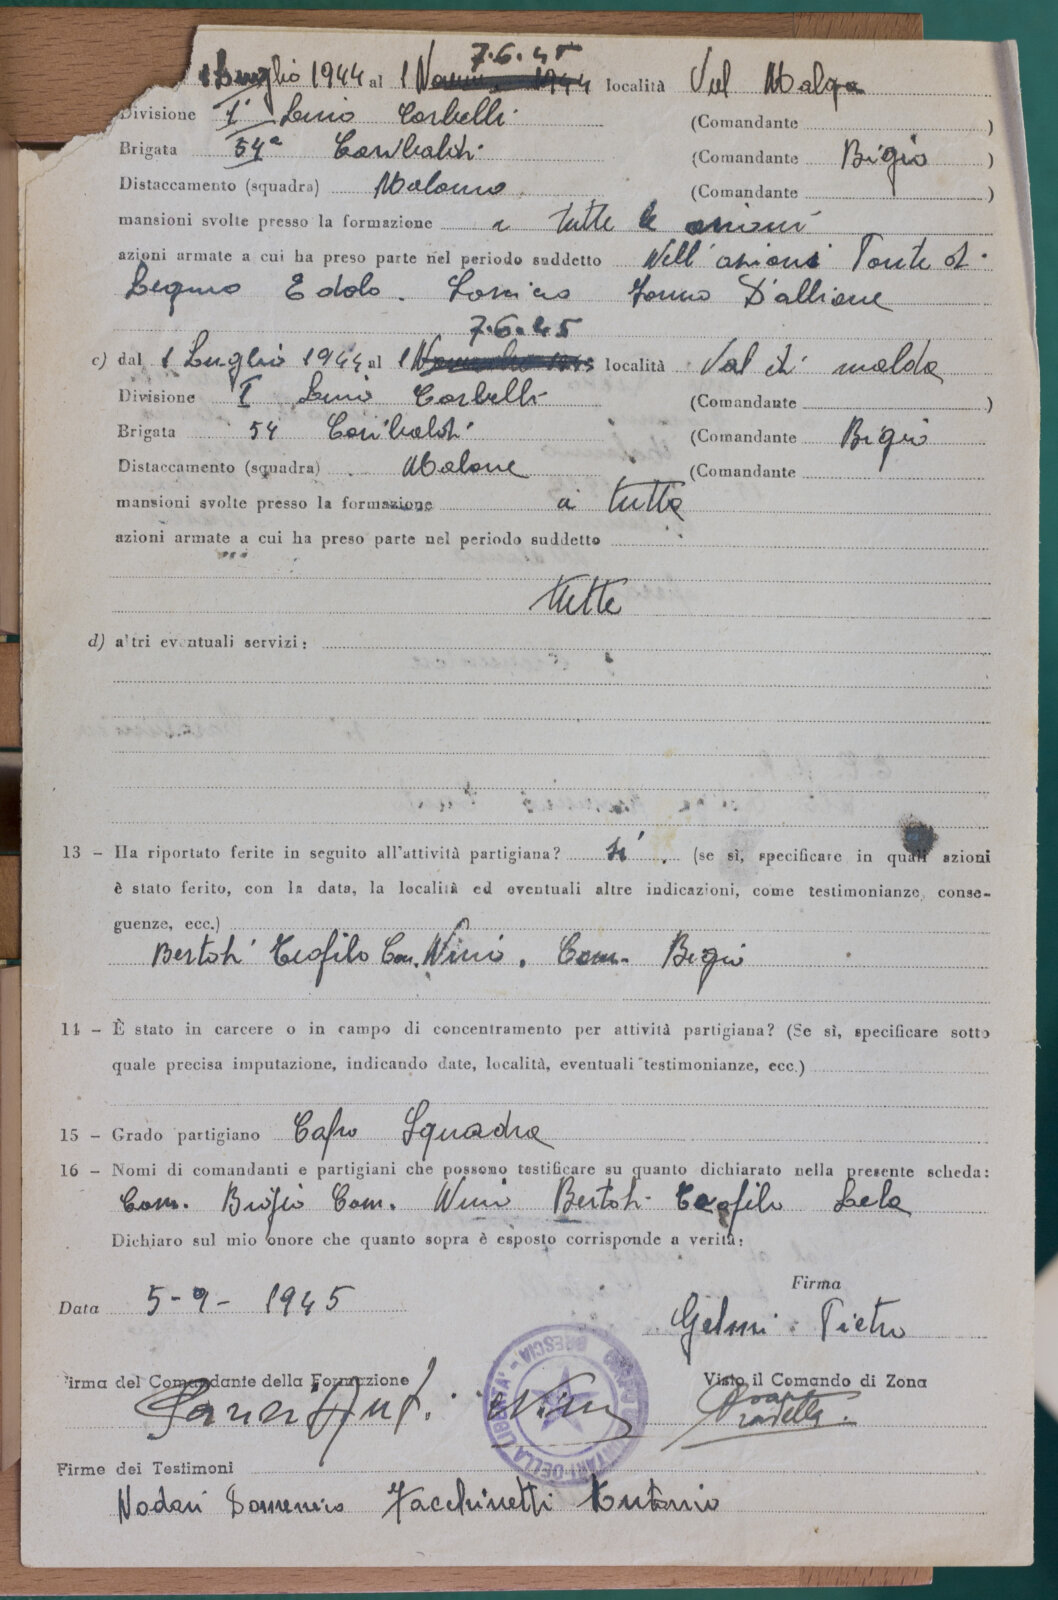 7.6.45
1 Luglio 1944 al 1 1944 località Val Malga
Divisione I° Lino Corbelli (Comandante )
Brigata 54ª Garibaldi (Comandante Bigio )
Distaccamento (squadra) Malonno (Comandante )
mansioni svolte presso la formazione a tutte le azioni
azioni armate a cui ha preso parte nel periodo suddetto Nell'azioni Ponte di
Legnio Edolo. Sonico Forno D'allione
7.6.45
c) dal 1 Luglio 1944 al 1 località Val di malda
Divisione I Lino Corbelli (Comandante )
Brigata 54 Garibaldi (Comandante Bigio
Distaccamento (squadra) Malone (Comandante
mansioni svolte presso la formazione a tutta
azioni armate a cui ha preso parte nel periodo suddetto
tutte
d) altri eventuali servizi:
13 - Ha riportato ferite in seguito all'attività partigiana? si . (se sì, specificare in quali azioni
è stato ferito, con la data, la località ed eventuali altre indicazioni, come testimonianze, conse-
guenze, ecc.)
Bertoli Teofilo Com. Nino. Com. Bigio
14 - È stato in carcere o in campo di concentramento per attività partigiana? (Se sì, specificare sotto
quale precisa imputazione, indicando date, località, eventuali testimonianze, ecc.)
15 - Grado partigiano Capo Squadra
16 - Nomi di comandanti e partigiani che possono testificare su quanto dichiarato nella presente scheda:
Com. Biogio Com. Nino Bertoli Teofilo Lela
Dichiaro sul mio onore che quanto sopra è esposto corrisponde a verità:
Firma
Data 5-9- 1945 Gelmi Pietro
Firma del Comandante della Formazione Visto il Comando di Zona
Nino
VOLONTARI DELLA LIBERTA' - BRESCIA
Firme dei Testimoni
Nodari Domenico Facchinetti Antonio